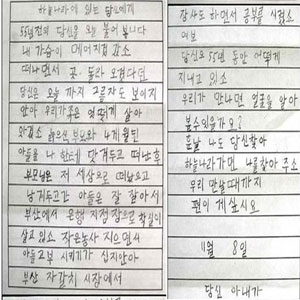 하늘나라에 있는 당신에게
55년전의 당신을 오늘 불러 봅니다
내 가슴이 메어지컵 소
떠나면서 곧 돌라 오겠다던
당신은 오늘 까지 그림자도 보이지
안아 우리가족은 엇떻게 살아
만겄소 늙으신 부모와 4개월된
아들을 나 한테 맛겨두고 떠난후
부모님은 저 세상으로 떠났으고
남겨두고간 아들은 잘 잘아서
부산에서 은행 지점장으로 착실이
살고 있소 작은농사 지으면서
아들교부 시키기가 십지안아
부산 자갈치 시장에서
장사도 하면서 공부를 시켰소
여보
당신은 55년 동안 어떻게
지내고 있소
우리가 만나면 얼굴을 알아
볼수있을가요?
훗날 나도 당신찾아
하늘나라가면 나를찾아 주소
우리 만날때까지
편이 게십시요
11월 8일
당신 아내가